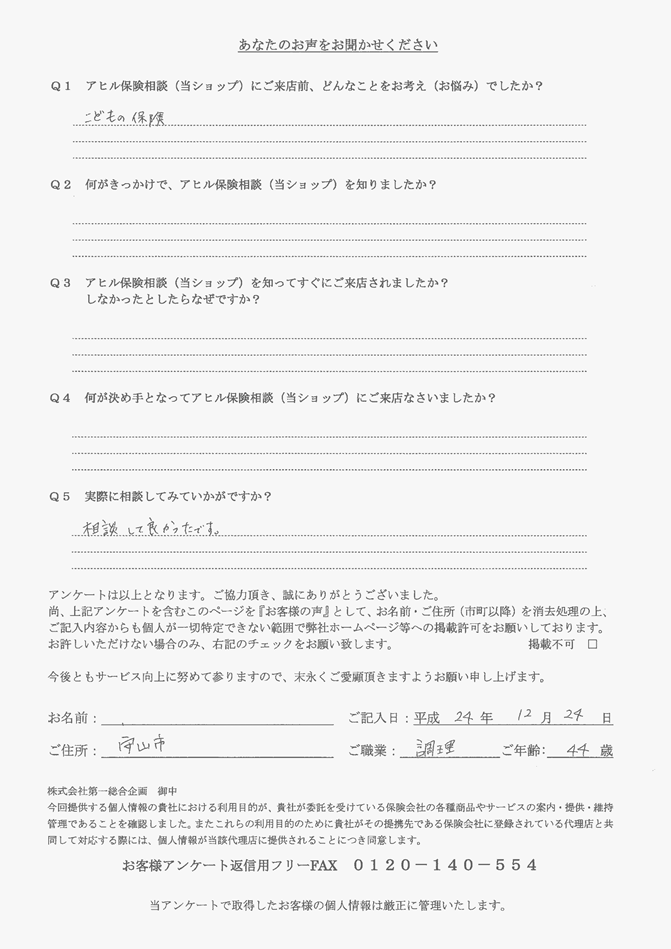 あなたのお声をお聞かせください
Q1 アヒル保険相談（当ショップ）にご来店前、どんなことをお考え（お悩み）でしたか？
こどもの保険
Q2 何がきっかけで、アヒル保険相談（当ショップ）を知りましたか？
Q3 アヒル保険相談（当ショップ）を知ってすぐにご来店されましたか？
しなかったとしたらなぜですか？
Q4 何が決め手となってアヒル保険相談（当ショップ）にご来店なさいましたか？
Q5 実際に相談してみていかがですか？
相談して良かったです。
アンケートは以上となります。ご協力頂き、誠にありがとうございました。
尚、上記アンケートを含むこのページを『お客様の声』として、お名前・ご住所（市町以降）を消去処理の上、
ご記入内容からも個人が一切特定できない範囲で弊社ホームページ等への掲載許可をお願いしております。
お許しいただけない場合のみ、右記のチェックをお願い致します。 掲載不可 □
今後ともサービス向上に努めて参りますので、末永くご愛顧頂きますようお願い申し上げます。
お名前： ご記入日：平成 24 年 12 月 24 日
ご住所： 守山市 ご職業： 調理 ご年齢： 44 歳
株式会社第一総合企画 御中
今回提供する個人情報の貴社における利用目的が、貴社が委託を受けている保険会社の各種商品やサービスの案内・提供・維持
管理であることを確認しました。またこれらの利用目的のために貴社がその提携先である保険会社に登録されている代理店と共
同して対応する際には、個人情報が当該代理店に提供されることにつき同意します。
お客様アンケート返信用フリーFAX 0120－140－554
当アンケートで取得したお客様の個人情報は厳正に管理いたします。